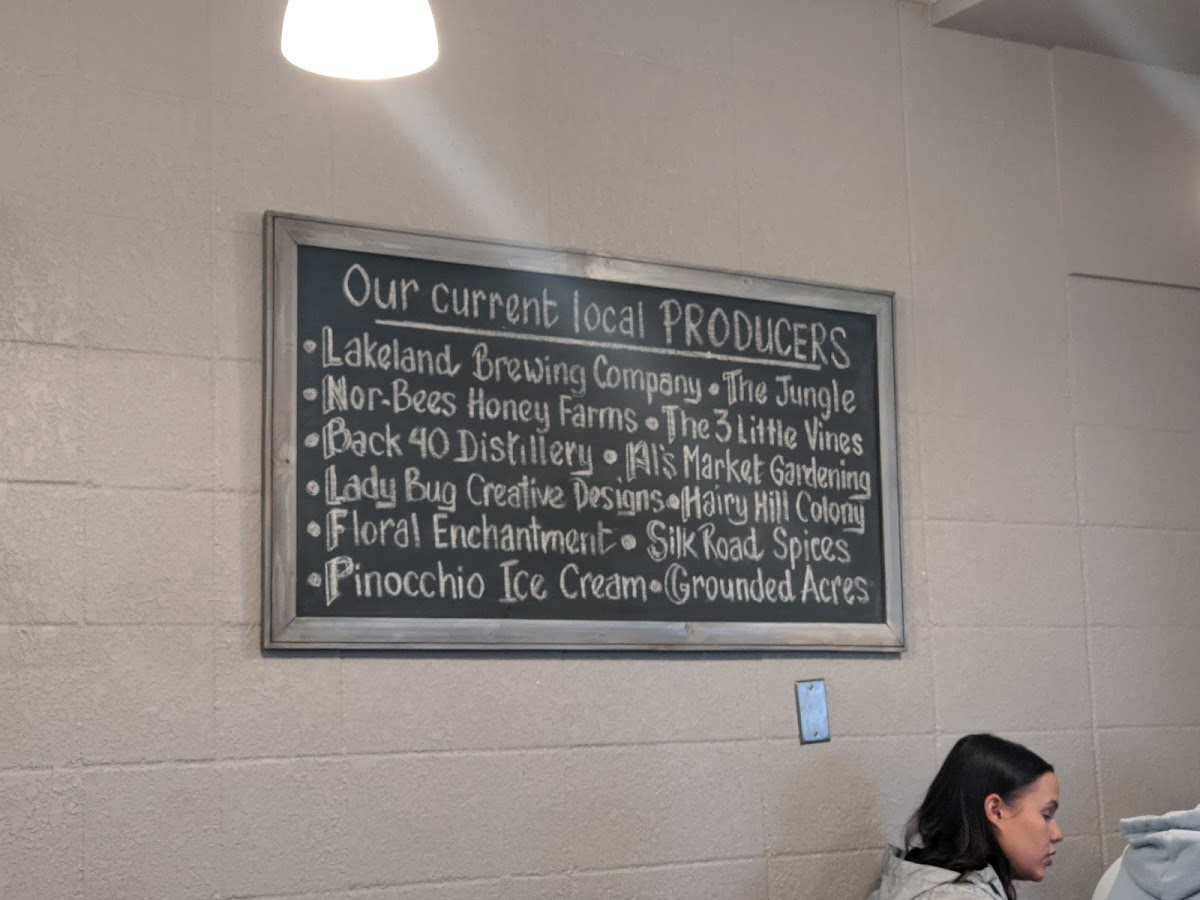 Our current local PRODUCERS
• Lakeland Brewing Company • The Jungle
• Nor-Bees Honey Farms • The 3 Little Vines
• Back 40 Distillery • Al's Market Gardening
• Lady Bug Creative Designs • Hairy Hill Colony
• Floral Enchantment • Silk Road Spices
• Pinocchio Ice Cream • Grounded Acres